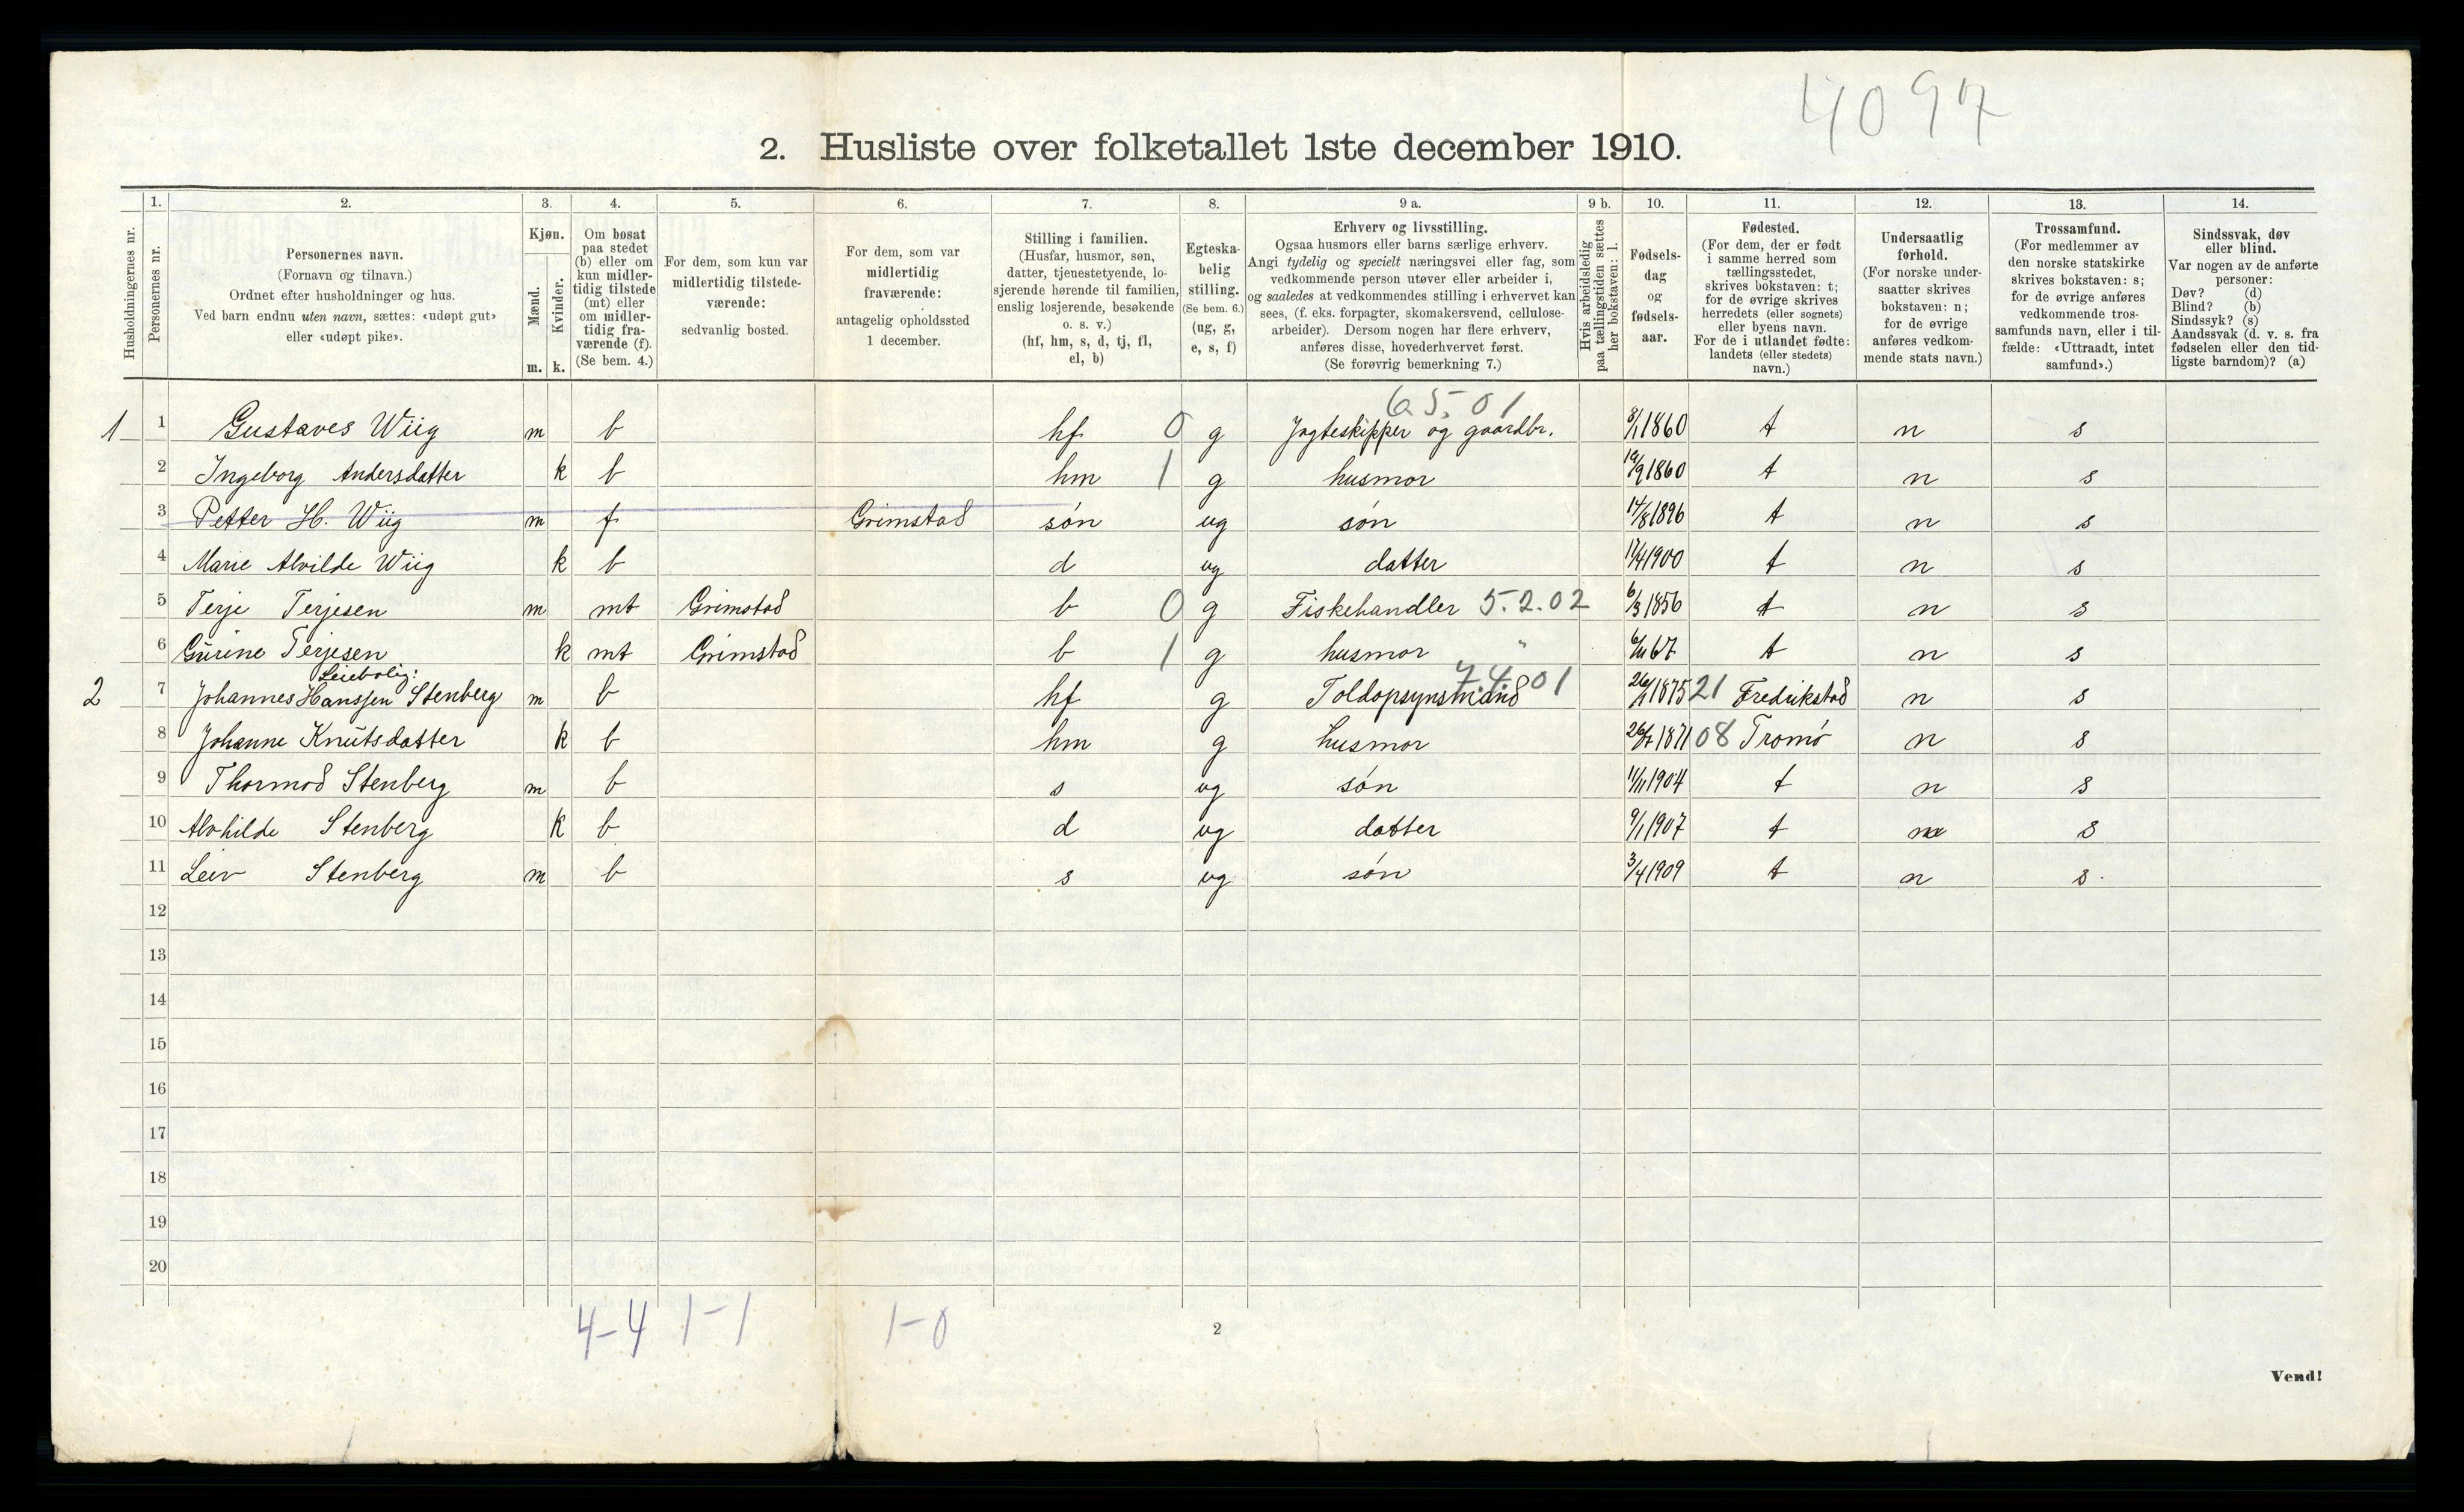 4097
2. Husliste over folketallet 1ste december 1910.
Husholdningernes nr.
1.
Personernes nr.
2.
Personernes navn.
(Fornavn og tilnavn.)
Ordnet efter husholdninger og hus.
Ved barn endnu uten navn, sættes: «udøpt gut»
eller «udøpt pike».
3.
Kjøn.
Mænd.
Kvinder.
m. k.
4.
Om bosat
paa stedet
(b) eller om
kun midler-
tidig tilstede
(mt) eller
om midler-
tidig fra-
værende (f).
(Se bem. 4.)
5.
For dem, som kun var
midlertidig tilstede-
værende:
sedvanlig bosted.
6.
For dem, som var
midlertidig
fraværende:
antagelig opholdssted
1 december.
7.
Stilling i familien.
(Husfar, husmor, søn,
datter, tjenestetyende, lo-
sjerende hørende til familien,
enslig losjerende, besøkende
o. s. v.)
(hf, hm, s, d, tj, fl,
el, b)
8.
Egteska-
belig
stilling.
(Se bem. 6.)
(ug, g,
e, s, f)
9 a.
Erhverv og livsstilling.
Ogsaa husmors eller barns særlige erhverv.
Angi tydelig og specielt næringsvei eller fag, som
vedkommende person utøver eller arbeider i,
og saaledes at vedkommendes stilling i erhvervet kan
sees, (f. eks. forpagter, skomakersvend, cellulose-
arbeider). Dersom nogen har flere erhverv,
anføres disse, hovederhvervet først.
(Se forøvrig bemerkning 7.)
9 b.
Hvis arbeidsledig
paa tællingstiden sættes
her bokstaven: l.
10.
Fødsels-
dag
og
fødsels-
aar.
11.
Fødested.
(For dem, der er født
i samme herred som
tællingsstedet,
skrives bokstaven: t;
for de øvrige skrives
herredets (eller sognets)
eller byens navn.
For de i utlandet fødte:
landets (eller stedets)
navn.)
12.
Undersaatlig
forhold.
(For norske under-
saatter skrives
bokstaven: n;
for de øvrige
anføres vedkom-
mende stats navn.)
13.
Trossamfund.
(For medlemmer av
den norske statskirke
skrives bokstaven: s;
for de øvrige anføres
vedkommende tros-
samfunds navn, eller i til-
fælde: «Uttraadt, intet
samfund».)
14.
Sindssvak, døv
eller blind.
Var nogen av de anførte
personer:
Døv? (d)
Blind? (b)
Sindssyk? (s)
Aandssvak (d. v. s. fra
fødselen eller den tid-
ligste barndom)? (a)
65.01
1 1 Gustaves Wiig m b hf 0 g Jagteskipper og gaardbr. 8/1 1860 t n s
2 Ingeborg Andersdatter k b hm 1 g husmor 19/9 1860 t n s
3 Petter H. Wiig m f Grimstad søn ug søn 14/8 1896 t n s
4 Marie Alvilde Wiig k b d ug datter 17/4 1900 t n s
5 Terje Terjesen m mt Grimstad b 0 g Fiskehandler 5.2.02 6/3 1856 t n s
6 Gurine Terjesen k mt Grimstad b 1 g husmor " 6/11 67 t n s
Leiebolig:
7.4.01
2 7 Johannes Hanssen Stenberg m b hf g Toldopsynsmand 1875 21 Fredrikstad n s
8 Johanne Knutsdatter k b hm g husmor 1871 08 Tromø n s
9 Thormod Stenberg m b s ug søn 11/11 1904 t n s
10 Alvhilde Stenberg k b d ug datter 9/1 1907 t n s
11 Leiv Stenberg m b s ug søn 3/4 1909 t n s.
12
13
14
15
16
17
18
19
20
4-4 1-1 1-0
2
Vend!